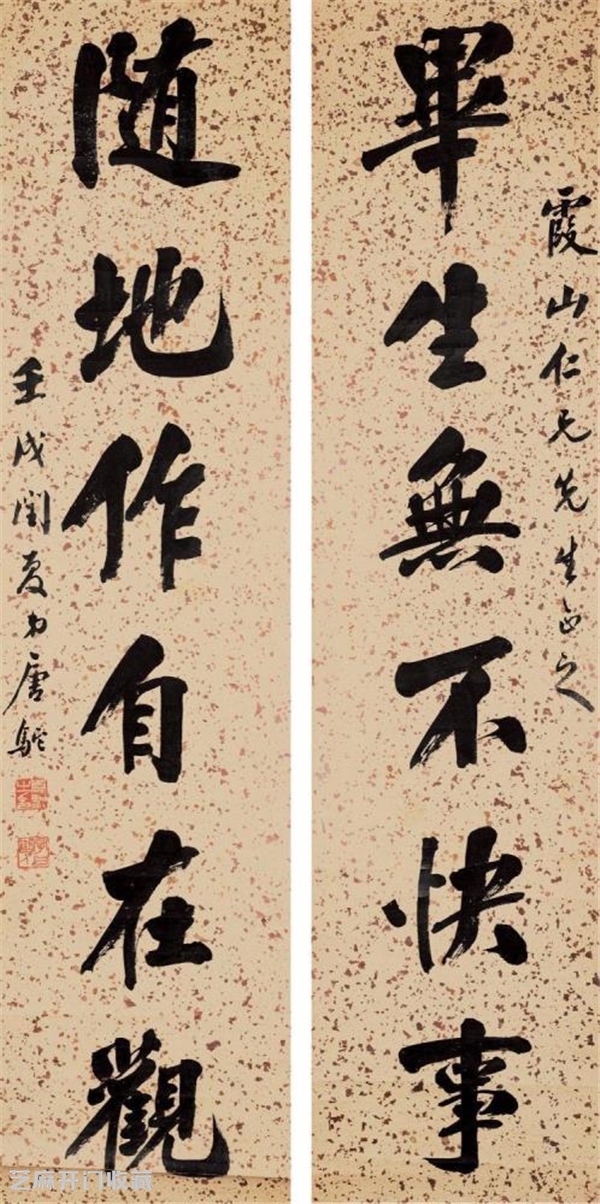 霞山仁兄先生正之
畢生無不快事
隨地作自在觀
壬戌閏夏弟唐駝
芝麻开门收藏